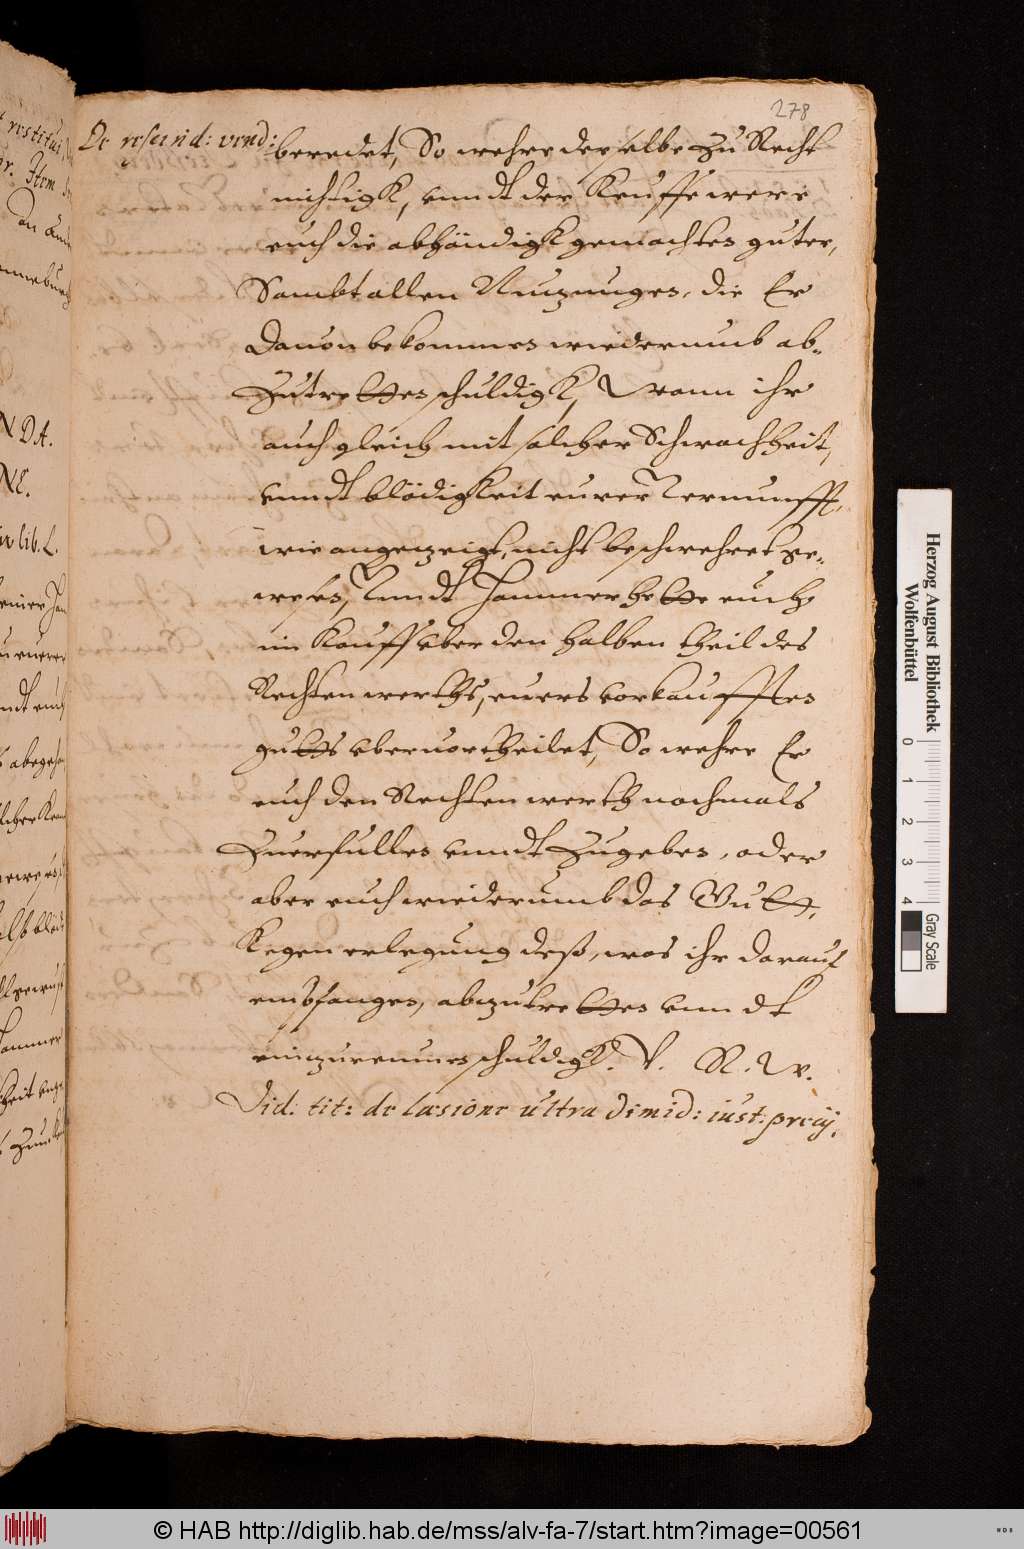 278
De rescind: vend:
beredet, So wehre derselbe zu Recht
nichtigk, vnndt der Keuffer were
euch die abhändigk gemachten guter,
Sambt allen Nutzungen, die Er
dauon bekommen wiederumb ab-
zutretten schuldigk, Wann ihr
auch gleich mit solcher Schwachheit,
vnndt blödigkeit eurer Vernunfft,
wie angezeigt, nicht beschwehret ge-
wesen, Vnndt Hammer hette euch
im Kauff vber den halben theil des
Rechten werths, euers vorkaufften
gutts vberuortheilet, So wehre Er
euch den Rechten werth nochmals
Zuerfullen vnndt Zugeben, oder
aber euch wiederumb das Gutt,
Kegen erlegung deß, was ihr darauf
empfangen, abzutretten vnndt
einzureumen schuldigk. V. R. W.
Vid: tit: de læsione ultra dimid: iust: precij.
restitui
Item
NDA.
NE.
lib. L.
Herzog August Bibliothek
Wolfenbüttel
0 1 2 3 4
Gray Scale
© HAB http://diglib.hab.de/mss/alv-fa-7/start.htm?image=00561